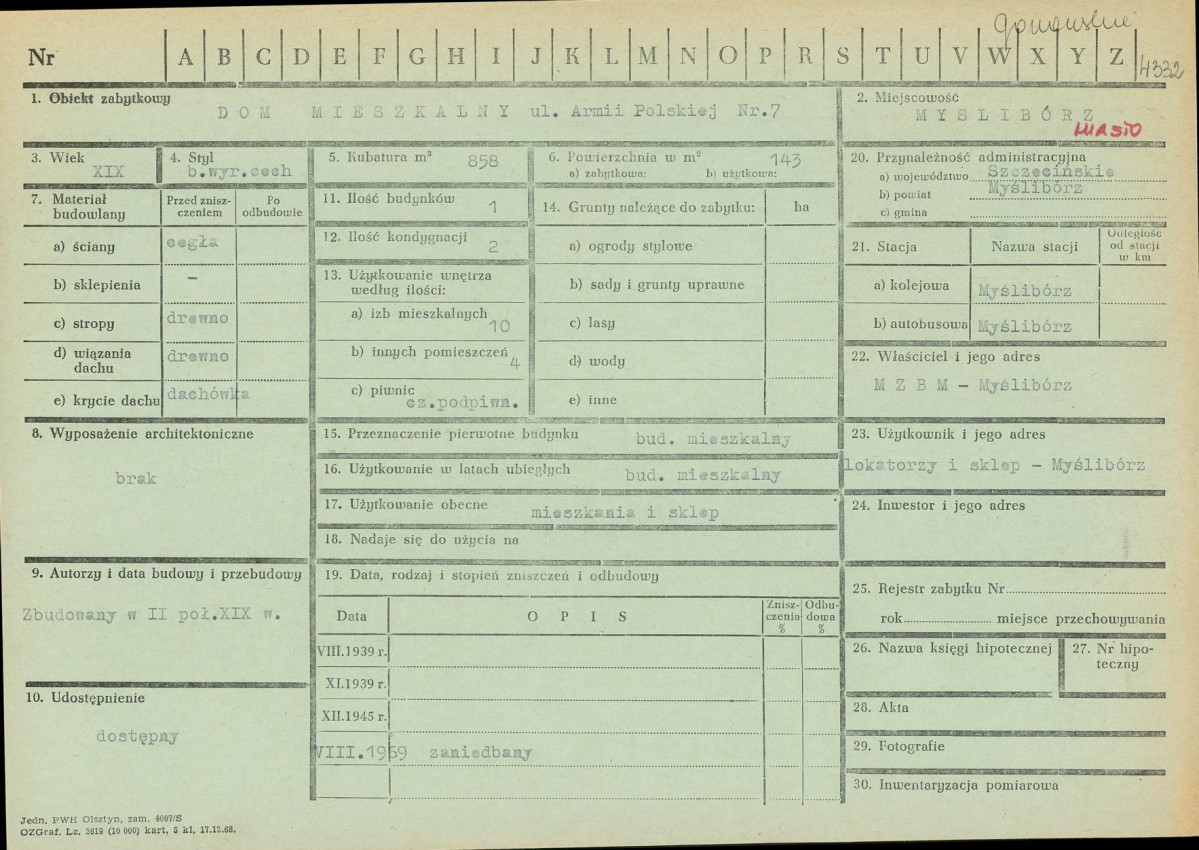 Nr A B C D E F G H I J K L M N O P R S T U V W X Y Z
4332
1. Obiekt zabytkowy
DOM MIESZKALNY ul. Armii Polskiej Nr.7
2. Miejscowość
MYSLIBÓRZ
MIASTO
3. Wiek
XIX
4. Styl
b.wyr.cech
5. Kubatura m³ 858
6. Powierzchnia w m² 143
a) zabytkowa: b) użytkowa:
20. Przynależność administracyjna
a) województwo Szczecińskie
b) powiat Myślibórz
c) gmina
7. Materiał budowlany
Przed znisz-
czeniem
Po
odbudowie
a) ściany cegła
b) sklepienia –
c) stropy drewno
d) wiązania
dachu drewno
e) krycie dachu dachówka
11. Ilość budynków 1
12. Ilość kondygnacji 2
13. Użytkowanie wnętrza
według ilości:
a) izb mieszkalnych 10
b) innych pomieszczeń 4
c) piwnic cz.podpiwn.
14. Grunty należące do zabytku: ha
a) ogrody stylowe
b) sady i grunty uprawne
c) lasy
d) wody
e) inne
21. Stacja Nazwa stacji
Odległość
od stacji
w km
a) kolejowa Myślibórz
b) autobusowa Myślibórz
22. Właściciel i jego adres
MZBM – Myślibórz
8. Wyposażenie architektoniczne
brak
15. Przeznaczenie pierwotne budynku bud. mieszkalny
16. Użytkowanie w latach ubiegłych bud. mieszkalny
17. Użytkowanie obecne mieszkania i sklep
18. Nadaje się do użycia na
23. Użytkownik i jego adres
lokatorzy i sklep – Myślibórz
24. Inwestor i jego adres
9. Autorzy i data budowy i przebudowy
Zbudowany w II poł.XIX w.
19. Data, rodzaj i stopień zniszczeń i odbudowy
Data OPIS
Znisz-
czenia
%
Odbu-
dowa
%
VIII.1939 r.
XI.1939 r.
XII.1945 r.
VIII.1969 zaniedbany
25. Rejestr zabytku Nr
rok miejsce przechowywania
26. Nazwa księgi hipotecznej
27. Nr hipo-
teczny
28. Akta
29. Fotografie
30. Inwentaryzacja pomiarowa
10. Udostępnienie
dostępny
Jedn. PWH Olsztyn, zam. 4097/S
OZGraf. Lz. 2619 (10 000) kart, 5 kl, 17.12.68.